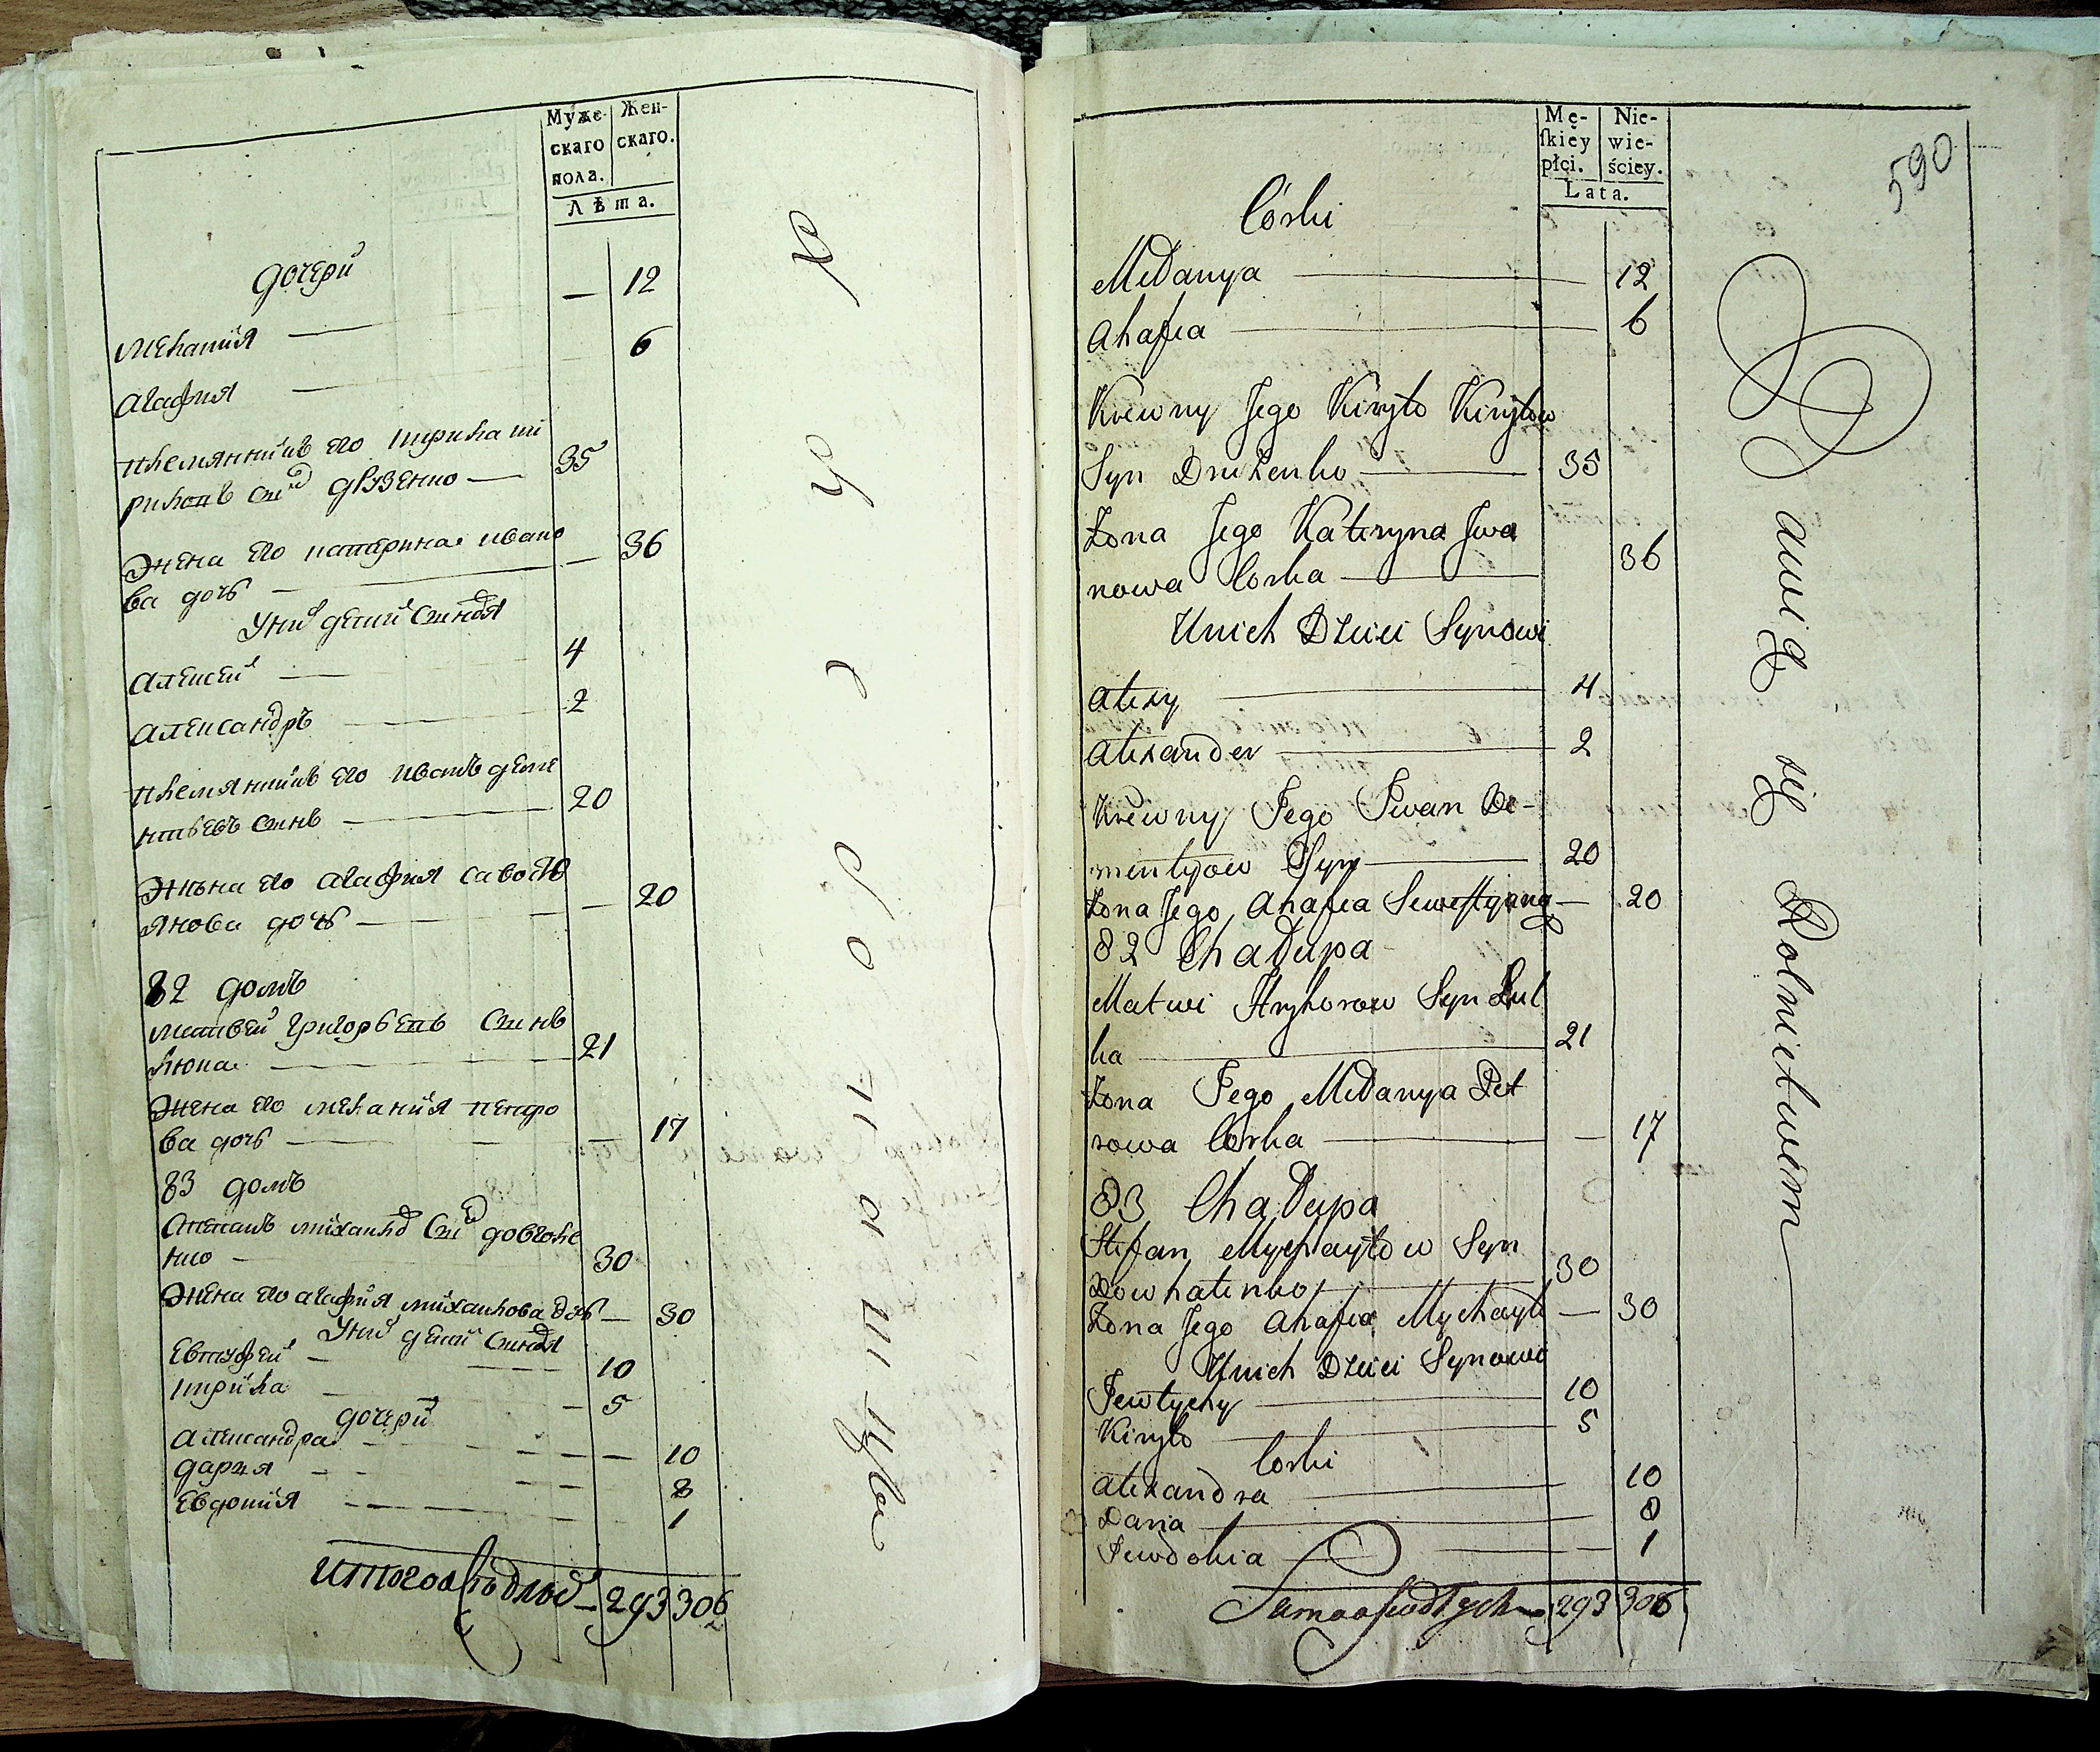 Муже-
скаго
пола.
Жен-
скаго.
Лѣта.
дочери
мелания — — 12
агафия — 6
племянникъ его кирила ки
риловъ сынъ друзенко — 35
жена его катерина ивано
ва дочь — — 36
у них детей синовя
алексей — 4
александръ — 2
племянникъ его иванъ деме
нтьевъ синъ — 20
жена его агафия савостю
янова дочь — — 20
82 домъ
матвей григорьевъ синъ
люлка — 21
жена его мелания петро
ва дочь — — 17
83 домъ
степанъ михайл син довгале
нко — 30
жена его агафия михаилова дочь — 30
у них детей синовя
евтуфей — 10
кирила — 5
дочери
александра — 10
дария — 8
евдокия — 1
293 306
590
Mę-
ſkiey
płci.
Nie-
wie-
ściey.
Lata.
Córki
Mełanya — 12
Ahafia — 6
Krewny Jego Kiryło Kiryłow
Syn Druzenko — 35
Żona Jego Kateryna Jwa
nowa Corka — 36
Unich Dzieci Synowi
Alexy — 4
Alexander — 2
Krewny Jego Jwan De-
mentyow Syn — 20
Żona Jego Ahafia Sewestyana — 20
82 Chałupa
Matwi Hryhorow Syn Lul
ka — 21
Żona Jego Mełanya Pet
rowa Corka — — 17
83 Chałupa
Stefan Mychayłow Syn
Dowhalenko — 30
Żona Jego Ahafia Mychayło — 30
Unich Dzieci Synowi
Jewtychy — 10
Kiryło — 5
Corki
Alexandra — 10
Daria — 8
Jewdokia — — 1
293 306
awią się Rolnictwem